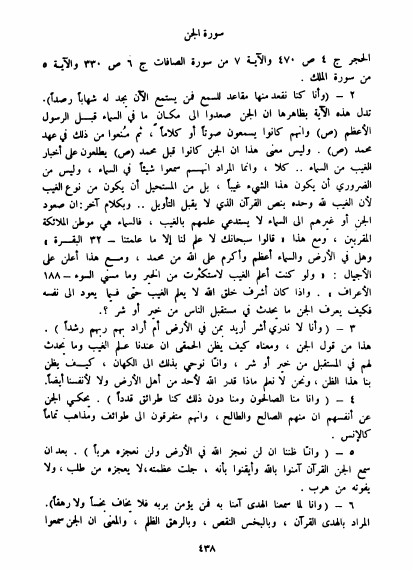 سورة الجن
الحجر ج ٤ ص ٤٧٠ والآية ٧ من سورة الصافات ج ٦ ص ٣٣٠ والآية ٥
من سورة الملك .
٢ – (وأنا كنا نقعد منها مقاعد للسمع فمن يستمع الآن يجد له شهاباً رصداً).
تدل هذه الآية بظاهرها ان الجن صعدوا الى مكان ما في السماء قبل الرسول
الأعظم (ص) وانهم كانوا يسمعون صوتاً أو كلاماً ، ثم منعوا من ذلك في عهد
محمد (ص) . وليس معنى هذا ان الجن كانوا قبل محمد (ص) يطلعون على أخبار
الغيب من السماء .. كلا ، وانما المراد انهم سمعوا شيئاً في السماء ، وليس من
الضروري أن يكون هذا الشيء غيباً ، بل من المستحيل أن يكون من نوع الغيب
لأن الغيب لله وحده بنص القرآن الذي لا يقبل التأويل .. وبكلام آخر : ان صعود
الجن أو غيرهم الى السماء لا يستدعي علمهم بالغيب ، فالسماء هي موطن الملائكة
المقربين ، ومع هذا « قالوا سبحانك لا علم لنا إلا ما علمتنا – ٣٢ البقرة »
وهل في الأرض والسماء أعظم وأكرم على الله من محمد ، ومع هذا أعلن على
الأجيال : « ولو كنت أعلم الغيب لاستكثرت من الخير وما مسني السوء – ١٨٨
الأعراف » . واذا كان أشرف خلق الله لا يعلم الغيب حتى فيما يعود الى نفسه
فكيف يعرف الجن ما يحدث في مستقبل الناس من خير أو شر ؟.
٣ – (وأنا لا ندري أشر أريد بمن في الأرض أم أراد بهم ربهم رشداً) .
هذا من قول الجن ، ومعناه كيف يظن الحمقى ان عندنا علم الغيب وما يحدث
لهم في المستقبل من خير أو شر ، وانّا نوحي بذلك الى الكهان ، كيف يظن
بنا هذا الظن ، ونحن لا نعلم ماذا قدر الله لأحد من أهل الأرض ولا لأنفسنا أيضاً.
٤ – (وانا منا الصالحون ومنا دون ذلك كنا طرائق قدداً) . يحكي الجن
عن أنفسهم ان منهم الصالح والطالح ، وانهم متفرقون الى طوائف ومذاهب تماماً
كالإنس .
٥ – (وانّا ظننا ان لن نعجز الله في الأرض ولن نعجزه هرباً) . بعد ان
سمع الجن القرآن آمنوا بالله وأيقنوا بأنه ، جلت عظمته ، لا يعجزه من طلب ، ولا
يفوته من هرب .
٦ – (وانا لما سمعنا الهدى آمنا به فمن يؤمن بربه فلا يخاف بخساً ولا رهقاً).
المراد بالهدى القرآن ، وبالبخس النقص ، وبالرهق الظلم ، والمعنى ان الجن سمعوا
٤٣٨